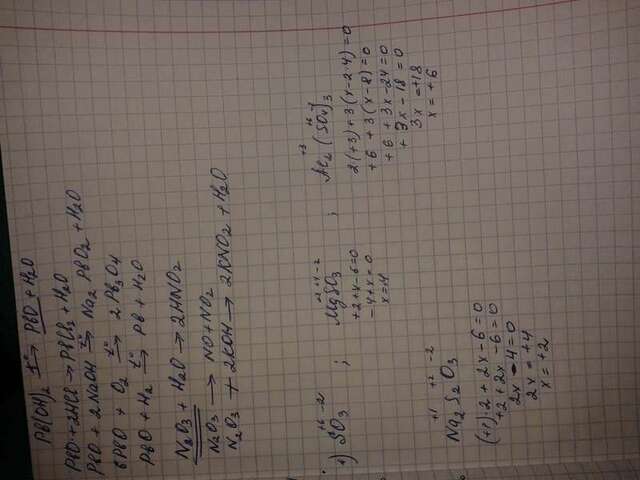 Pb(OH)₂ →t° PbO + H₂O
PbO + 2HCl → PbCl₂ + H₂O
PbO + 2NaOH →t° Na₂PbO₂ + H₂O
6PbO + O₂ →t° 2Pb₃O₄
PbO + H₂ →t° Pb + H₂O
N₂O₃ + H₂O → 2HNO₂
N₂O₃ → NO + NO₂
N₂O₃ + 2KOH → 2KNO₂ + H₂O
+6 -2
1) SO₃ ;
+2 +x -2
MgSO₃ ;
+2+x-6=0
-4+x=0
x=+4
+3 +6 -2
Al₂(SO₄)₃
2(+3)+3(x-2·4)=0
+6+3(x-8)=0
+6+3x-24=0
+3x-18=0
3x=+18
x=+6
+1 +2 -2
Na₂S₂O₃
(+1)·2+2x-6=0
+2+2x-6=0
2x-4=0
2x=+4
x=+2